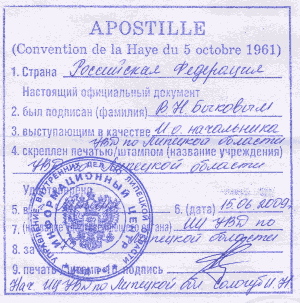 APOSTILLE
(Convention de la Haye du 5 octobre 1961)
1. Страна Российская Федерация
Настоящий официальный документ
2. был подписан (фамилия) В Н Быковым
3. выступающим в качестве И о начальника
УВД по Липецкой области
4. скреплен печатью/штампом (название учреждения)
УВД по Липецкой области
Удостоверено
5. в 6. (дата) 15.06.2009
7. ИЦ УВД по
Липецкой области
8. за
9. печать подпись
Нач. ИЦ УВД по Липецкой обл
ИНФОРМАЦИОННЫЙ ЦЕНТР